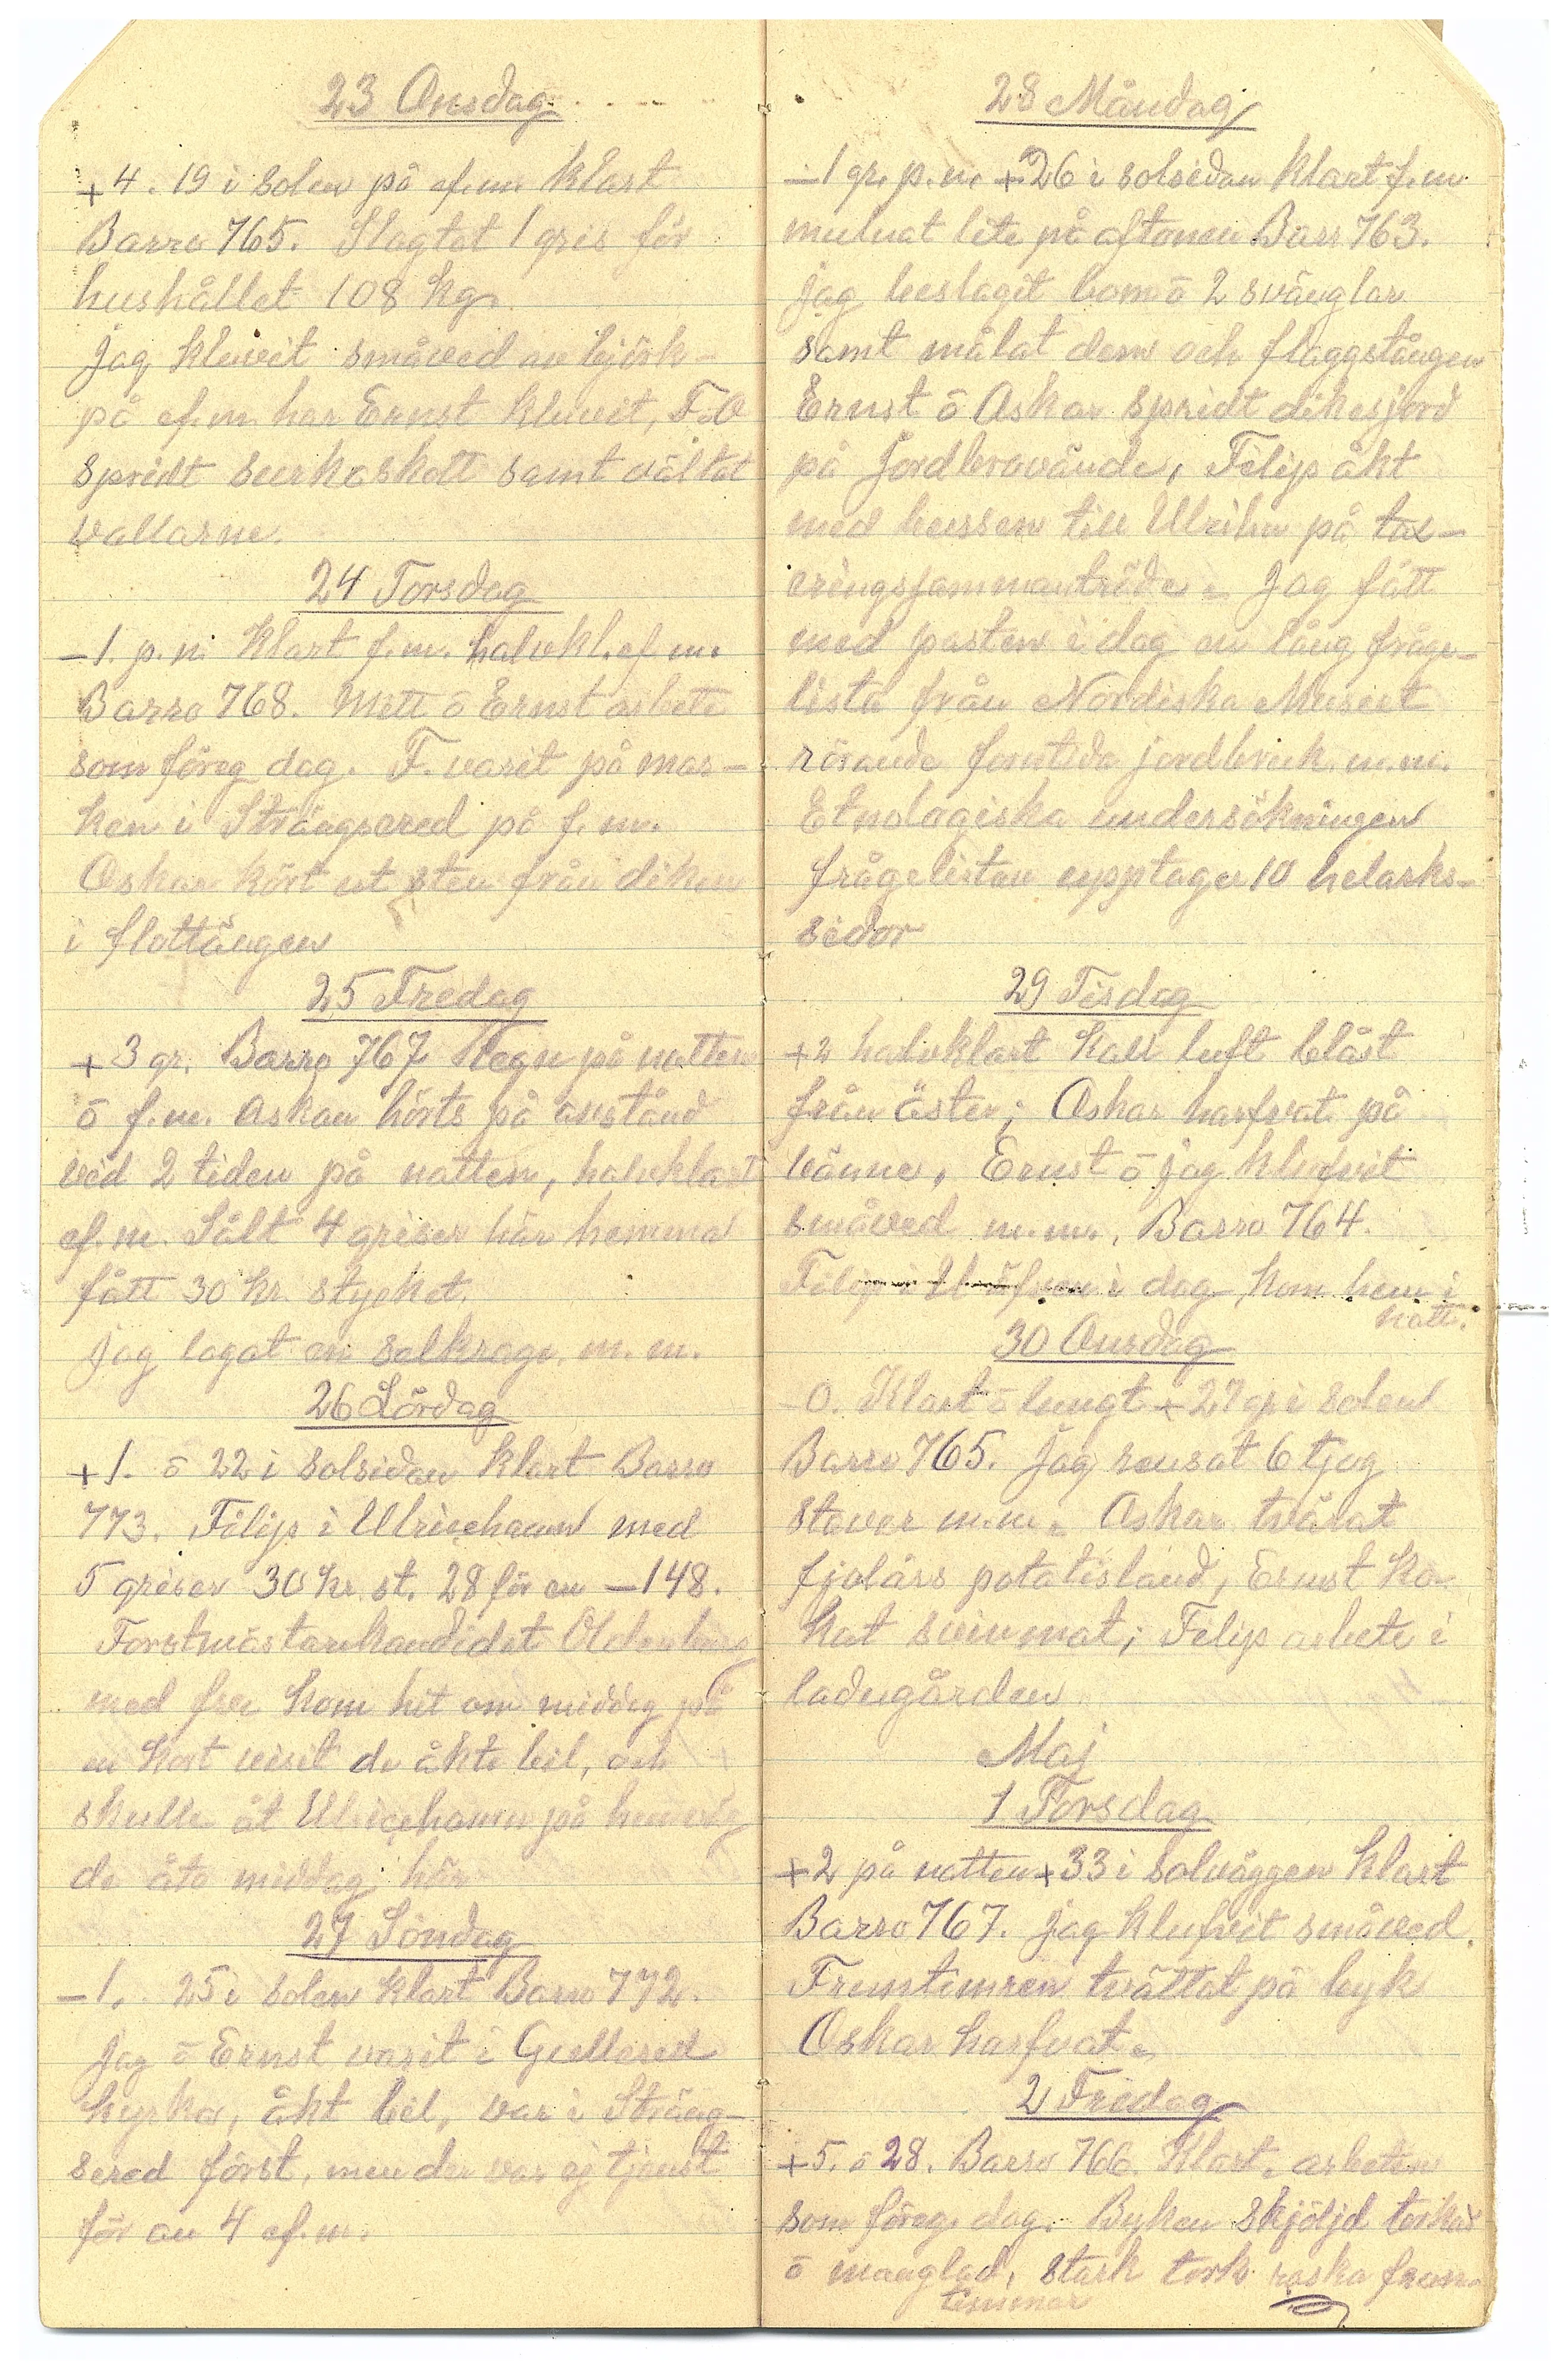 23 Onsdag
+4. 19 i solen på ef.m. klart
Barro 765. Slagtat 1 gris för
hushållet 108 kg.
Jag kluvit småved av björk-
på ef.m. har Ernst kluvit, F.O
spridt surkoskott samt vältat
vallarne.
24 Torsdag
-1. p.n. Klart f.m. halvkl. ef.m.
Barro 768. Mett ō Ernst arbete
som föreg dag. F. varit på mar-
ken i Strängsered på f.m.
Oskar kört ut sten från diken
i flottängen
25 Fredag
+3 gr. Barro 767 Regn på natten
ō f.m. Åskan hörts på avstånd
ved 2 tiden på natten, halvklart
ef.m. Sålt 4 griser här hemma
fått 30 kr. stycket.
Jag lagat en selkrage m.m.
26 Lördag
+1. ō 22 i solsidan klart Barro
773. Filip i Ulricehamn med
5 griser 30 kr. st. 28 för en -148.
Forstmästarekandidat Oldenburg
med fru kom hit om middag på
en kort visit de åkte bil, och
skulle åt Ulricehamn på hemväg
de åto middag här
27 Söndag
-1. 25 i solen klart Barro 772.
Jag ō Ernst varit i Gullered
kyrka, åkt bil, var i Sträng-
sered först, men der var ej tjenst
för än 4 ef.m.
28 Måndag
-1 gr. p.n. +26 i solsidan klart f.m
mulnat lite på aftonen Barr 763.
Jag beslagit bom ō 2 svänglar
samt målat dem och flaggstången
Ernst ō Oskar spridt dikesjord
på Jordbrovände, Filip åkt
med bussen till Ulrihn på tax-
eringssammanträde. Jag fått
med posten i dag en lång fråge-
lista från Nordiska Museet
rörande forntida jordbruk m.m.
Etnologiska undersökningen
frågelistan upptager 10 helarks-
sidor
29 Tisdag
+2 halvklart kall luft blåst
från öster; Oskar harfvat på
vänne, Ernst ō jag klufvit
småved m.m. Barro 764.
Filip i dag kom hem i
natt.
30 Onsdag
-0. Klart ō lungt +27 gr i solen
Barro 765. Jag rensat 6 tjog
staver m.m. Oskar tvärat
fjolårs potatisland, Ernst ko-
kat svinmat; Filip arbete i
ladugården
Maj
1 Torsdag
+2 på natten +33 i solväggen klart
Barro 767. Jag klufvit småved.
Fruntimren tvättat på byk
Oskar harfvat.
2 Fredag
+5. ō 28. Barro 766. Klart. arbeten
som föreg. dag. Byken skjöljd torkad
ō manglad, stark tork raska frun-
timmer